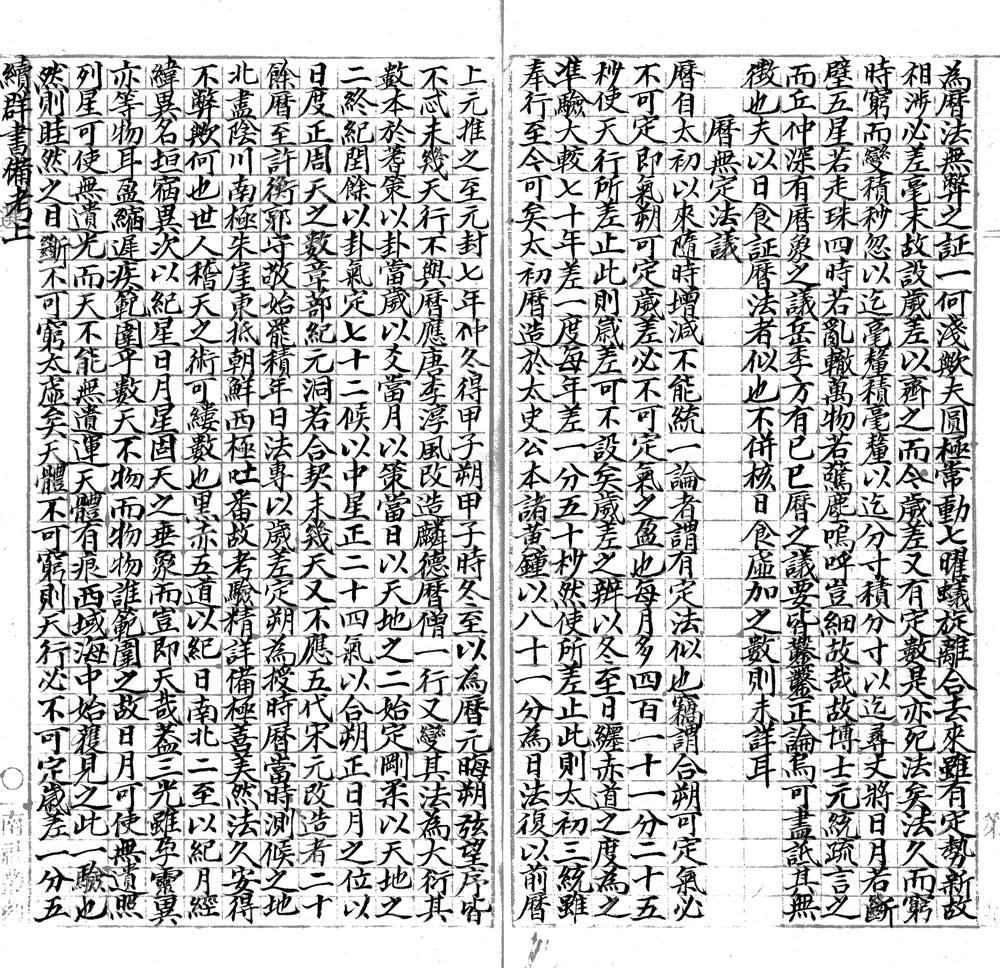 為曆法無弊之証一何淺歟夫圓極常動七曜蟻旋離合去來雖有定勢新故
相涉必差毫末故設歲差以齊之而今歲差又有定數是亦死法矣法久而窮
時窮而變積秒忽以迄毫釐積毫釐以迄分寸積分寸以迄尋丈將日月若斷
璧五星若走珠四時若亂轍萬物若驚塵嗚呼豈細故哉故博士元統疏言之
而丘仲深有曆象之議岳季方有已巳曆之議要皆鑿鑿正論烏可盡詆其無
徵也夫以日食証曆法者似也不併核日食虛加之數則未詳耳
曆無定法議
曆自太初以來隨時增減不能統一論者謂有定法似也竊謂合朔可定氣必
不可定即氣朔可定歲差必不可定氣之盈也每月多四百一十一分二十五
秒使天行所差止此則歲差可不設矣歲差之辨以冬至日纏赤道之度為之
準驗大較七十年差一度每年差一分五十杪然使所差止此則太初三統雖
奉行至今可矣太初曆造於太史公本諸黃鐘以八十一分為日法復以前曆
上元推之至元封七年仲冬得甲子朔甲子時冬至以為曆元晦朔弦望序皆
不忒未幾天行不與曆應唐李淳風改造麟德曆僧一行又變其法為大衍其
數本於蓍策以卦當歲以爻當月以策當日以天地之二始定剛柔以天地之
二終紀閏餘以卦氣定七十二候以中星正二十四氣以合朔正日月之位以
日度正周天之數章蔀紀元洞若合契未幾天又不應五代宋元改造者二十
餘曆至許衡郭守敬始罷積年日法專以歲差定朔為授時曆當時測候之地
北盡陰川南極朱崖東抵朝鮮西極吐番故考驗精詳備極善美然法久安得
不弊歟何也世人稽天之術可縷數也黑赤五道以紀日南北二至以紀月經
緯異名垣宿異次以紀星日月星固天之垂象而豈即天哉葢三光雖孕靈異
亦等物耳盈縮遲疾範圍乎數天不物而物物誰範圍之故日月可使無遺照
列星可使無遺光而天不能無遺運天體有痕西域海中始穫見之此一驗也
然則眭然之日斷不可窮太虛矣天體不可窮則天行必不可定歲差一分五
續群書備考上